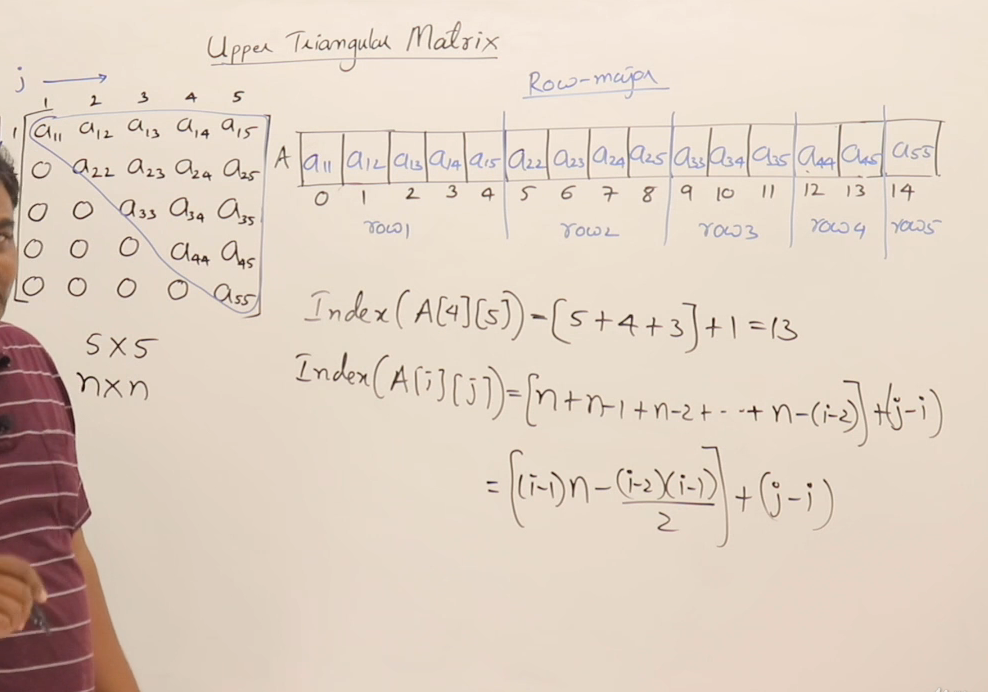 Upper Triangular Matrix
j →
1 2 3 4 5
1
a11 a12 a13 a14 a15
0 a22 a23 a24 a25
0 0 a33 a34 a35
0 0 0 a44 a45
0 0 0 0 a55
5×5
n×n
Row-major
A a11 a12 a13 a14 a15 a22 a23 a24 a25 a33 a34 a35 a44 a45 a55
0 1 2 3 4 5 6 7 8 9 10 11 12 13 14
row1 row2 row3 row4 row5
Index(A[4][5])=[5+4+3]+1=13
Index(A[i][j])=[n+n-1+n-2+--+n-(i-2)]+(j-i)
=[(i-1)n-(i-2)(i-1)/2]+(j-i)